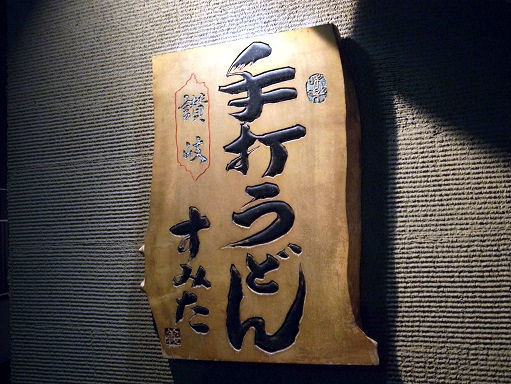 手打うどん
讃岐
すみた